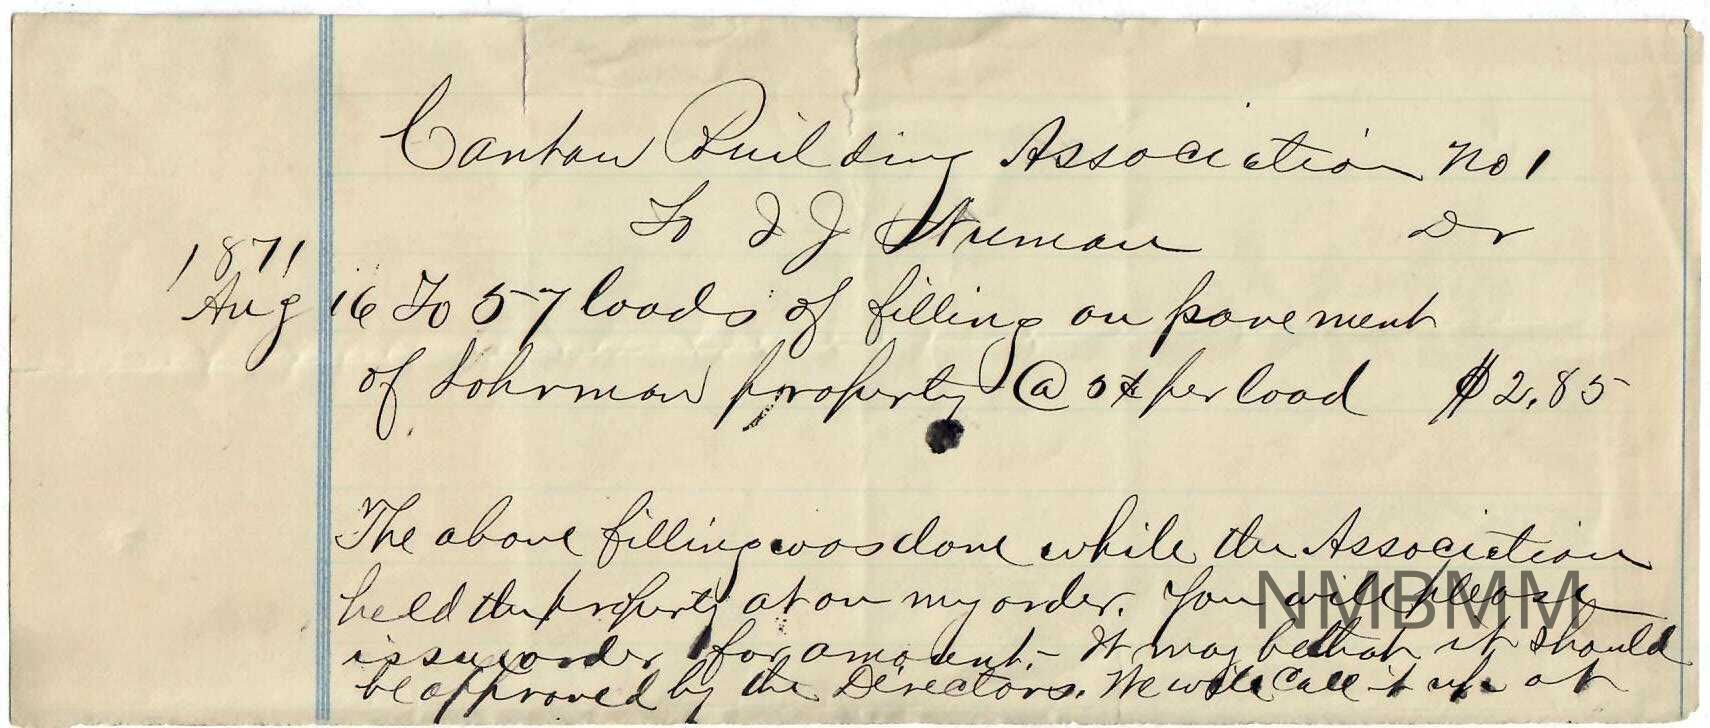 Canton Building Association No 1
To J J Dr
1871
Aug 16 To 57 loads of filling on pavement
of Lohrman property @ 5¢ per load $2.85
The above filling was done while the Association
held the property at on my order. You will please
issue order for amount. - It may be that it should
be approved by the Directors. We will call it up at
NMBMM